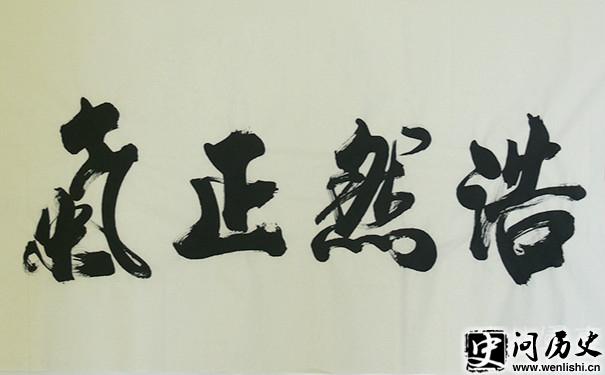 浩然正氣
史问历史
www.wenlishi.cn